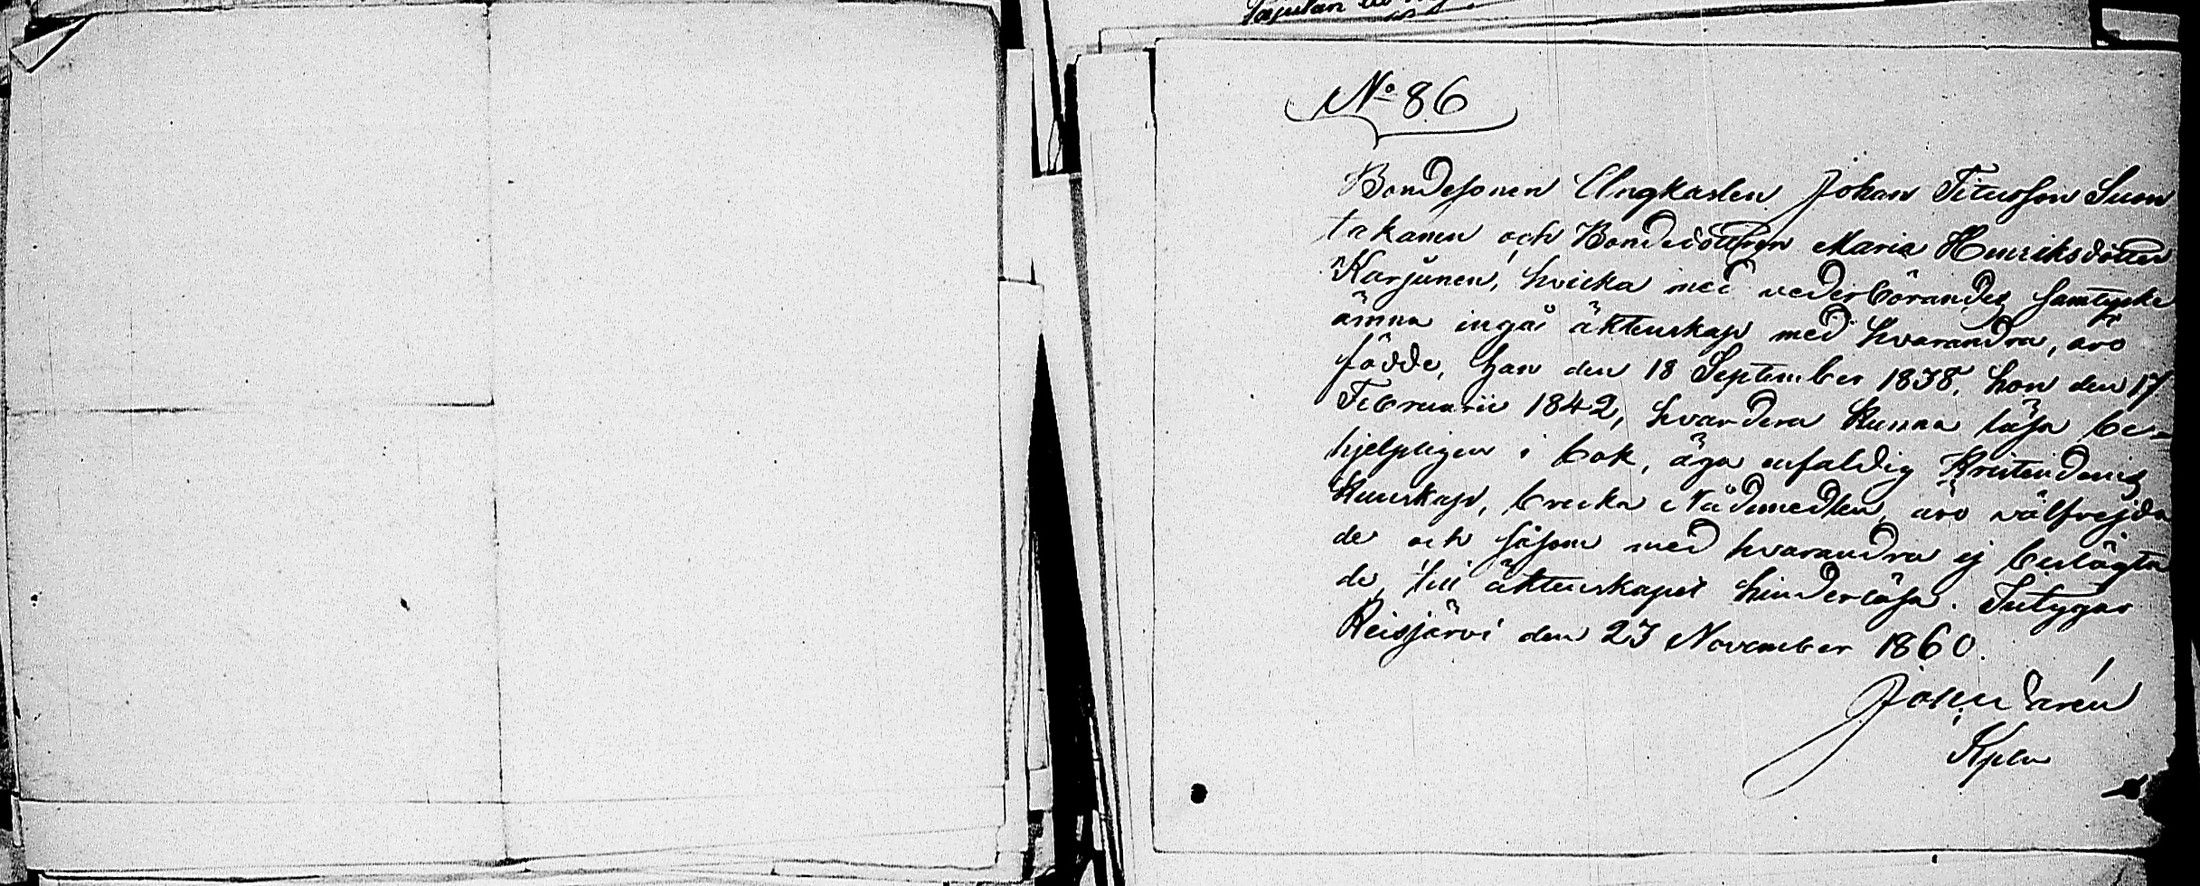 No 86
Bondesonen Ungkarlen Johan Titusson Suon
takanen och Bondedottren Maria Henriksdotter
Karjunen, hvilka med vederbörandes samtycke
ämna ingå äktenskap med hvarandra, äro
födde, han den 18 September 1838, hon den 17
Februarii 1842, hvardera kunna läsa be=
hjelpligen i bok, äga enfaldig Kristendoms
kunskap, bruka Nådmedlen, äro välfrejda
de och såsom med hvarandra ej beslägta
de, till äktenskapet hinderlösa. Intygar
Reisjärvi den 23 November 1860.
Kpln